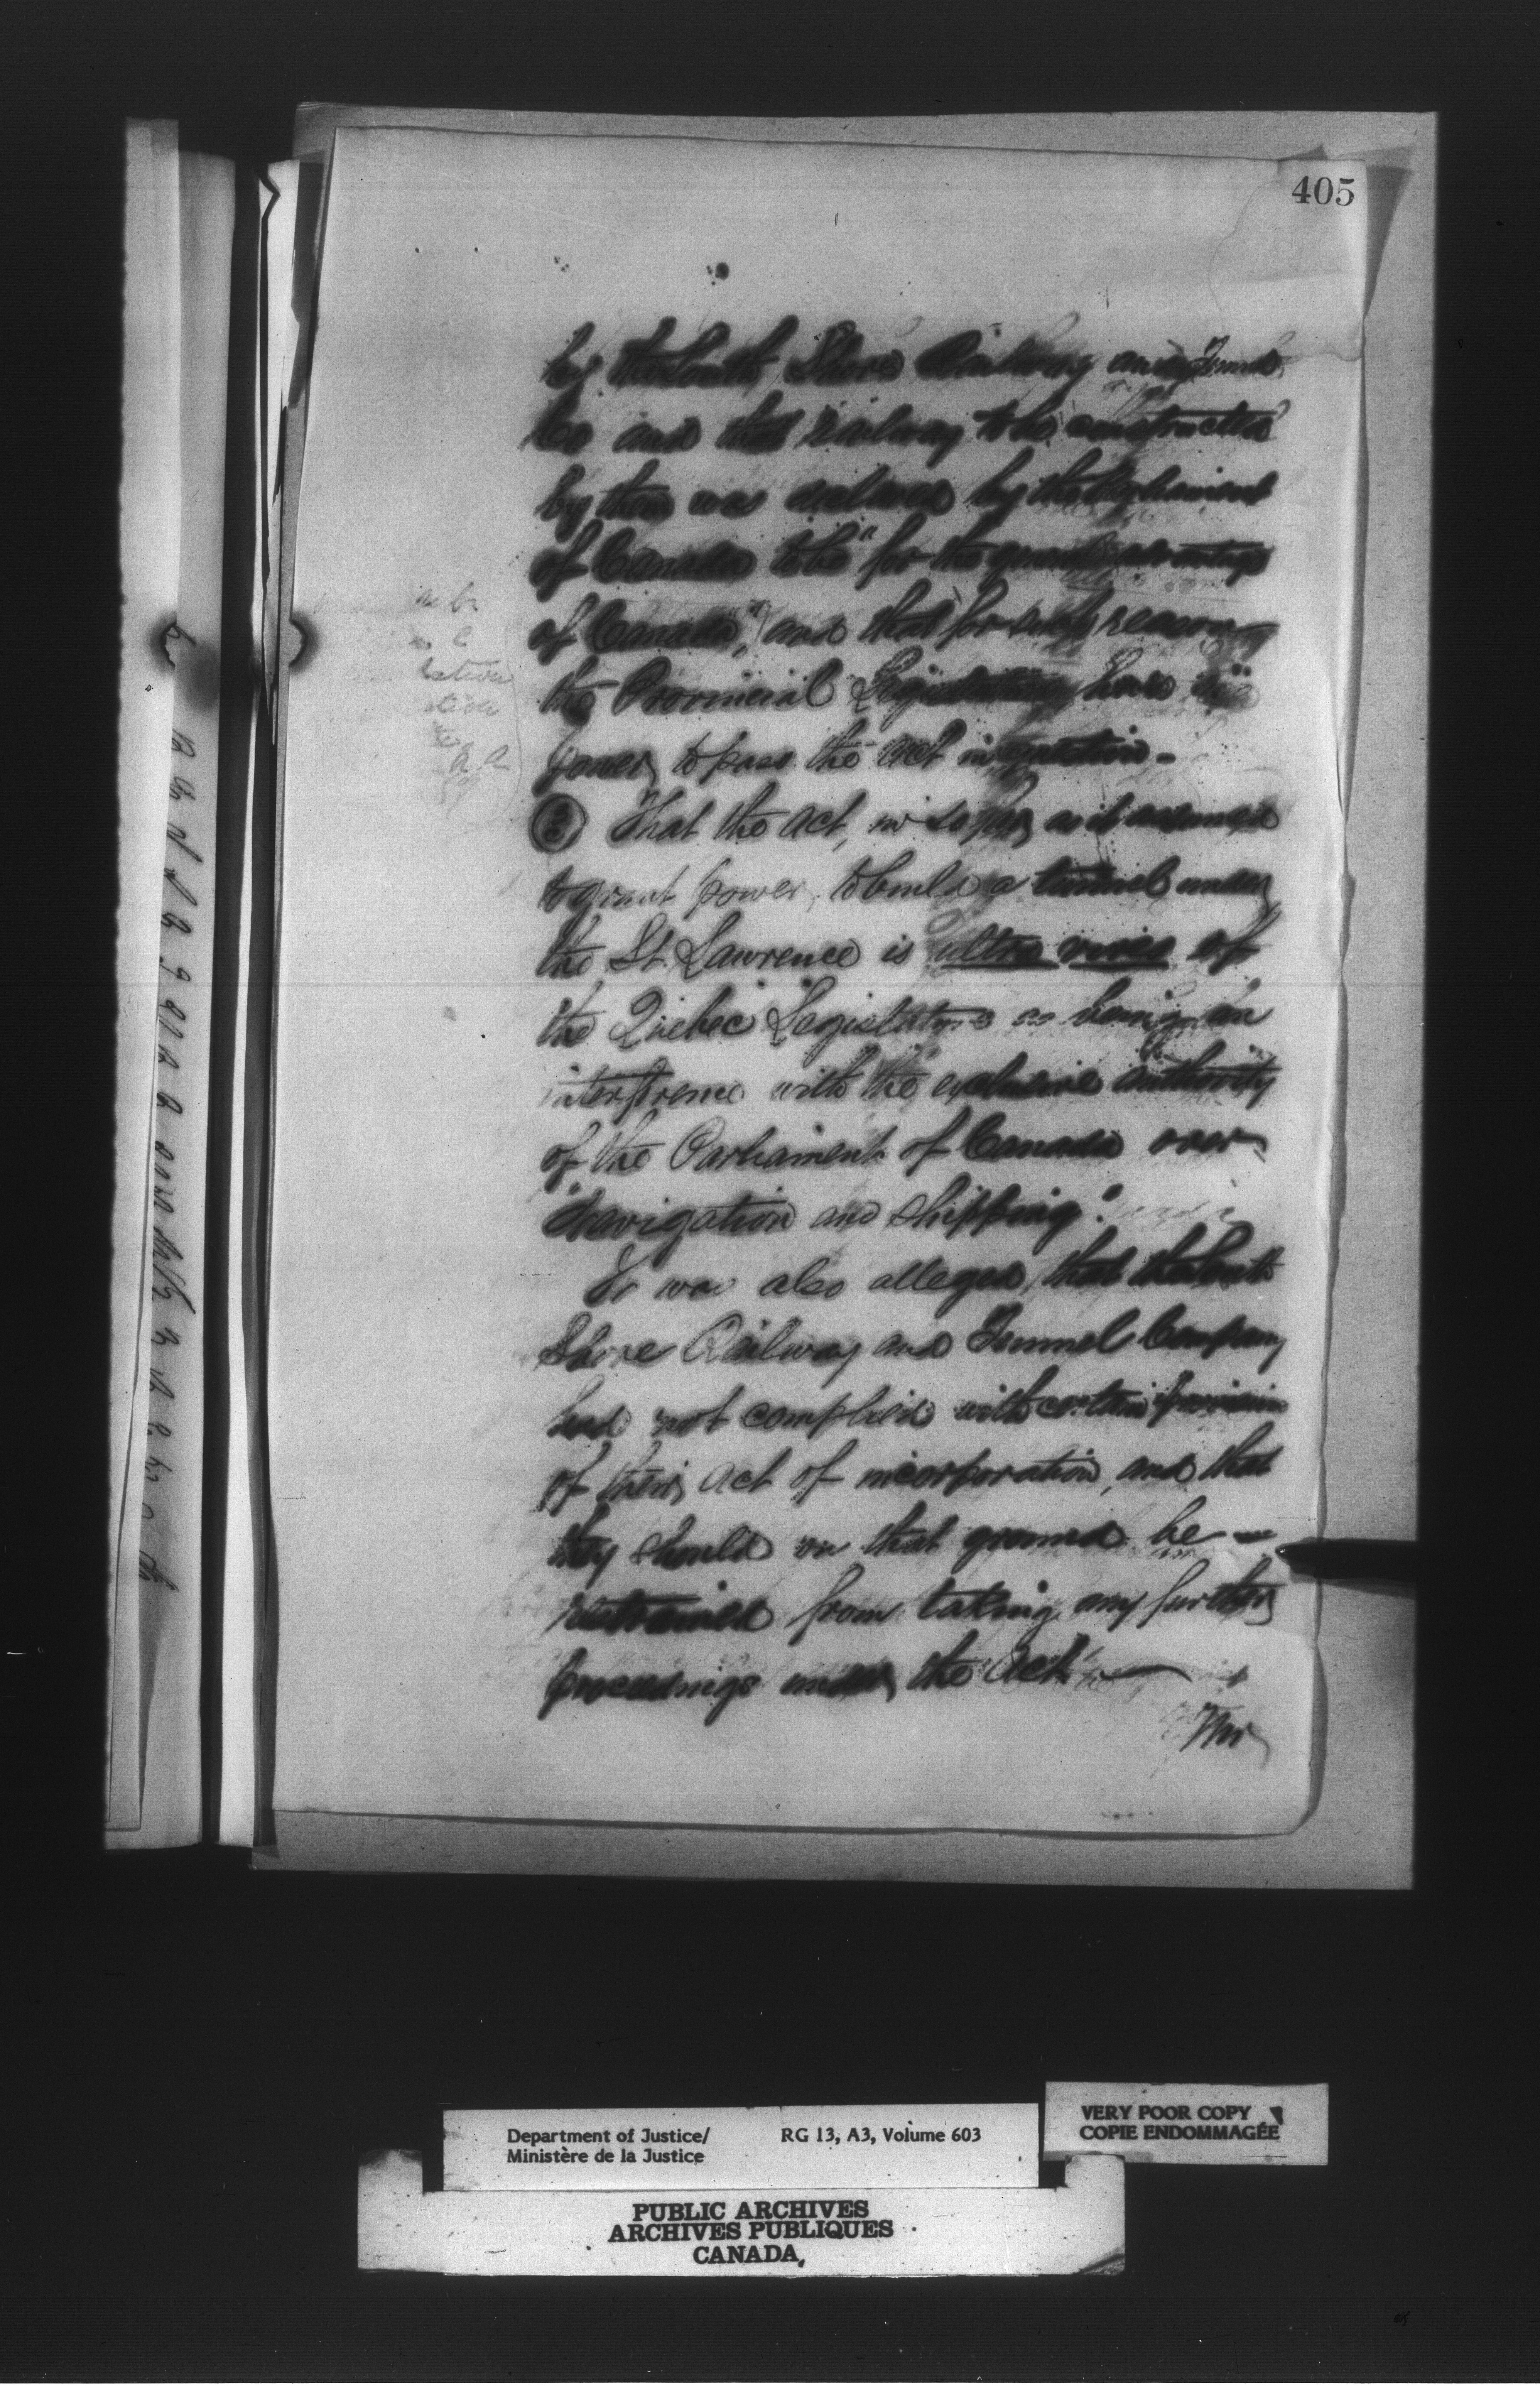 405
by the South Shore Railway and Tunnel
Co and that railway to be constructed
by them was declared by the Parliament
of Canada to be "for the general advantage
of Canada", and that for such reason
the Provincial Legislature have no
power to pass the act in question -
That the act, in so far as it assumes
to grant power, to build a tunnel under
the St. Lawrence is ultra vires of
the Quebec Legislature as being an
interference with the exclusive authority
of the Parliament of Canada over
"Navigation and Shipping".
It was also alleged that the South
Shore Railway and Tunnel Company
had not complied with certain provision
of their act of incorporation, and that
they should on that ground be
restrained from taking any further
proceedings under the Act
Department of Justice/ RG 13, A3, Volume 603
Ministère de la Justice
VERY POOR COPY
COPIE ENDOMMAGÉE
PUBLIC ARCHIVES
ARCHIVES PUBLIQUES
CANADA